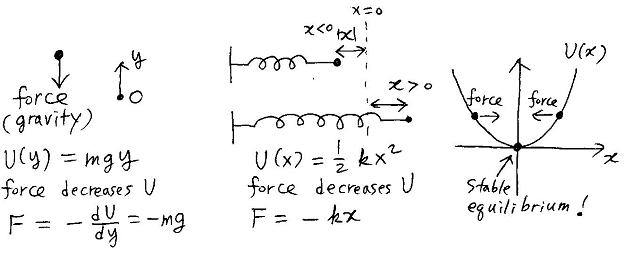 y
O
force
(gravity)
U(y) = mgy
force decreases U
F = - dU/dy = -mg
x=0
x<0
|x|
x>0
U(x) = 1/2 kx²
force decreases U
F = - kx
U(x)
force
force
x
Stable
equilibrium!